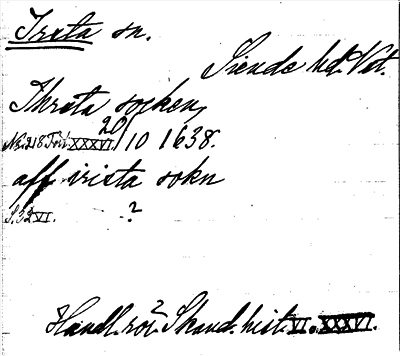 Irsta sn.
Siende hd. Vstm.
Ihrsta socken,
Nr. 218 Fört. XXXVI. 20/10 1638.
aff irista sokn
S. 32 VI. ?
Handl. rör. Skand. hist. VI. XXXVI.